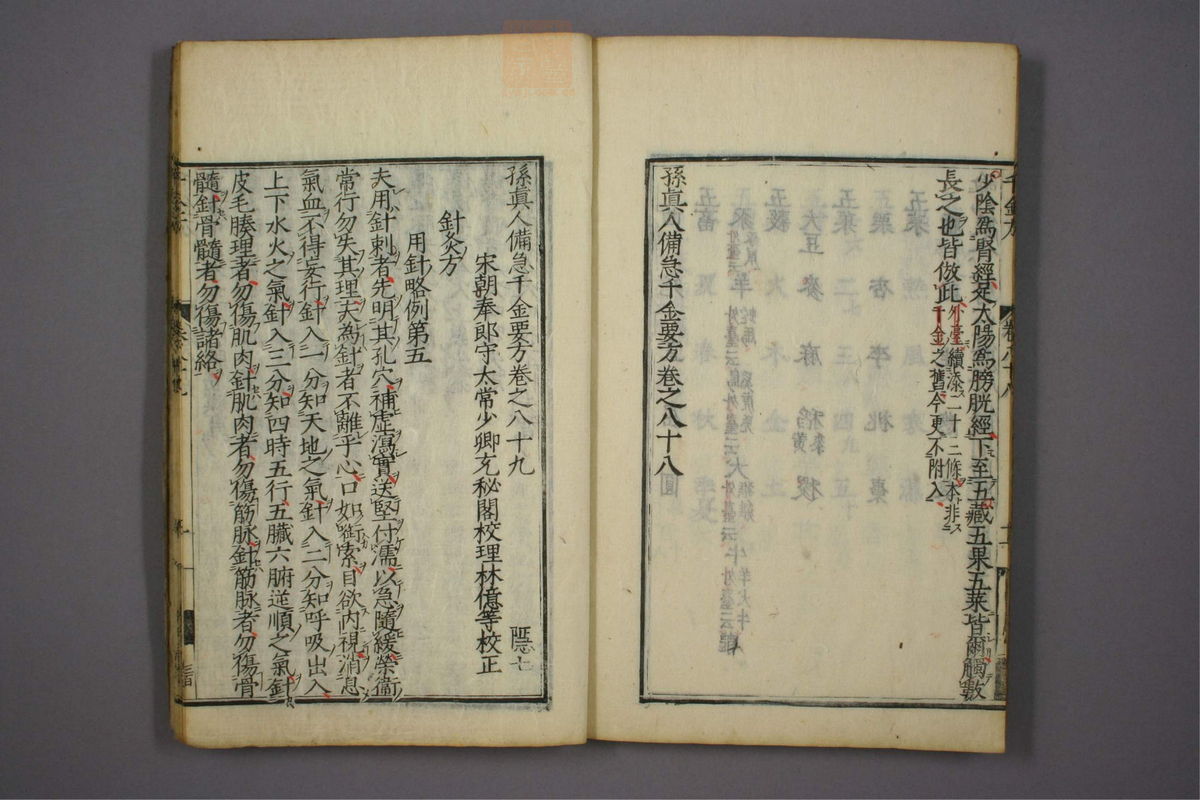 少陰爲腎經足太陽爲膀胱經下至五藏五果五菜皆爾觸數
長之也皆倣此外臺續添二十三條本非
千金之舊今更不附入
孫眞人備急千金要方卷之八十八
孫眞人備急千金要方卷之八十九
宋朝奉郎守太常少卿充秘閣校理林億等校正
針灸方
用針略例第五
夫用針刺者先明其孔穴補虛瀉實送堅付濡以急隨緩榮衞
常行勿失其理夫為針者不離乎心口如銜索目欲內視消息
氣血不得妄行針入一分知天地之氣針入二分知呼吸出入
上下水火之氣針入三分知四時五行五臓六腑逆順之氣針
皮毛腠理者勿傷肌肉針肌肉者勿傷筋脉針筋脉者勿傷骨
髓針骨髓者勿傷諸絡